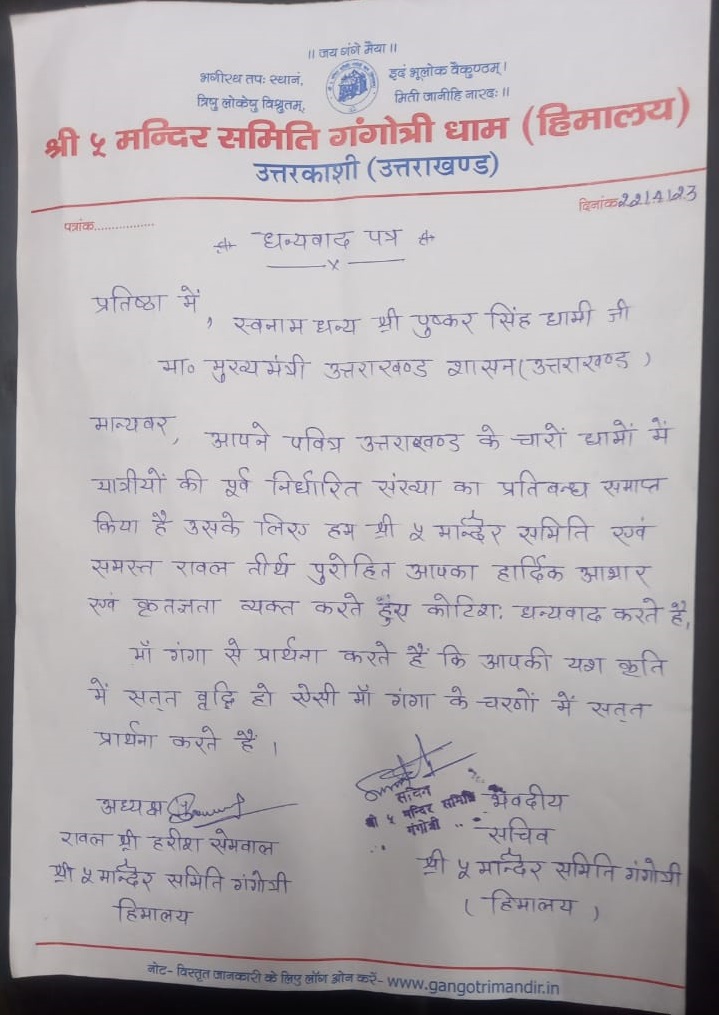 ॥ जय गंगे मैया ॥
भगीरथ तपः स्थानं,
इदं भूलोक वैकुण्ठम्।
त्रिषु लोकेषु विश्रुतम्,
मिती जानीहि नारदः ॥
श्री ५ मन्दिर समिति गंगोत्री धाम (हिमालय)
उत्तरकाशी (उत्तराखण्ड)
पत्रांक................
दिनांक 22/4/23
धन्यवाद पत्र
प्रतिष्ठा में,
स्वनाम धन्य श्री पुष्कर सिंह धामी जी
मा० मुख्यमंत्री उत्तराखण्ड शासन (उत्तराखण्ड)
मान्यवर, आपने पवित्र उत्तराखण्ड के चारों धामों में
यात्रीयों की पूर्व निर्धारित संख्या का प्रतिबन्ध समाप्त
किया है उसके लिए हम श्री ५ मन्दिर समिति एवं
समस्त रावल तीर्थ पुरोहित आपका हार्दिक आभार
एवं कृतज्ञता व्यक्त करते हुए कोटिशः धन्यवाद करते है,
माँ गंगा से प्रार्थना करते हैं कि आपकी यश कृति
में सतत वृद्धि हो ऐसी माँ गंगा के चरणों में सतत
प्रार्थना करते हैं।
अध्यक्ष
रावल श्री हरीश सेमवाल
श्री ५ मन्दिर समिति गंगोत्री
हिमालय
सचिव
श्री ५ मन्दिर समिति
गंगोत्री
भवदीय
सचिव
श्री ५ मन्दिर समिति गंगोत्री
( हिमालय )
नोट- विस्तृत जानकारी के लिए लॉग ओन करें- www.gangotrimandir.in